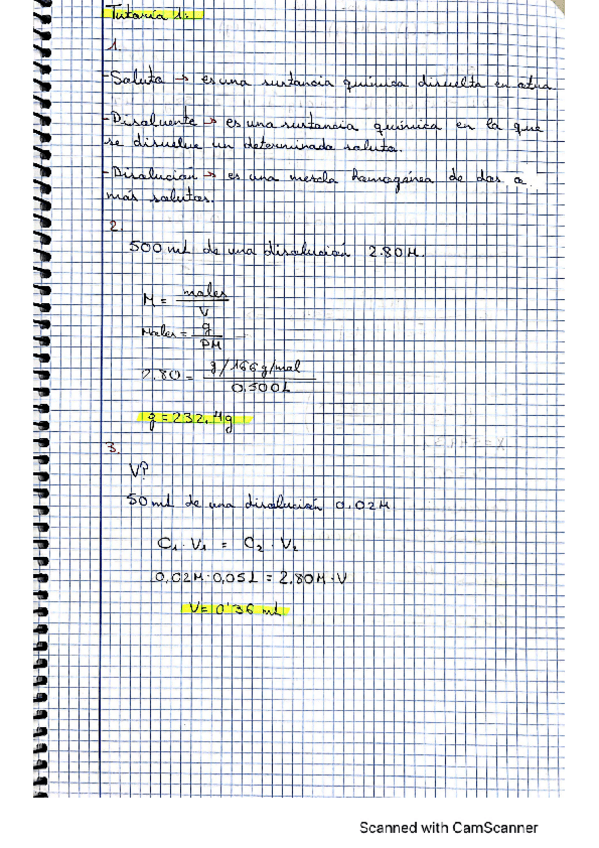 Tutoria 1:
1.
-Soluto → es una sustancia química disuelta en otra
-Disolvente → es una sustancia química en la que
se disuelve un determinado soluto.
-Disolución → es una mezcla homogénea de dos o
más solutos.
2.
500 ml de una disolución 2.80 M.
M = moles / V
Moles = g / PM
2.80 = g/166g/mol / 0.500L
g = 232,4g
3.
V?
50 ml de una disolución 0.02M
C₁ · V₁ = C₂ · V₂
0,02M·0,05L = 2,80M·V
V = 0'36 ml
Scanned with CamScanner